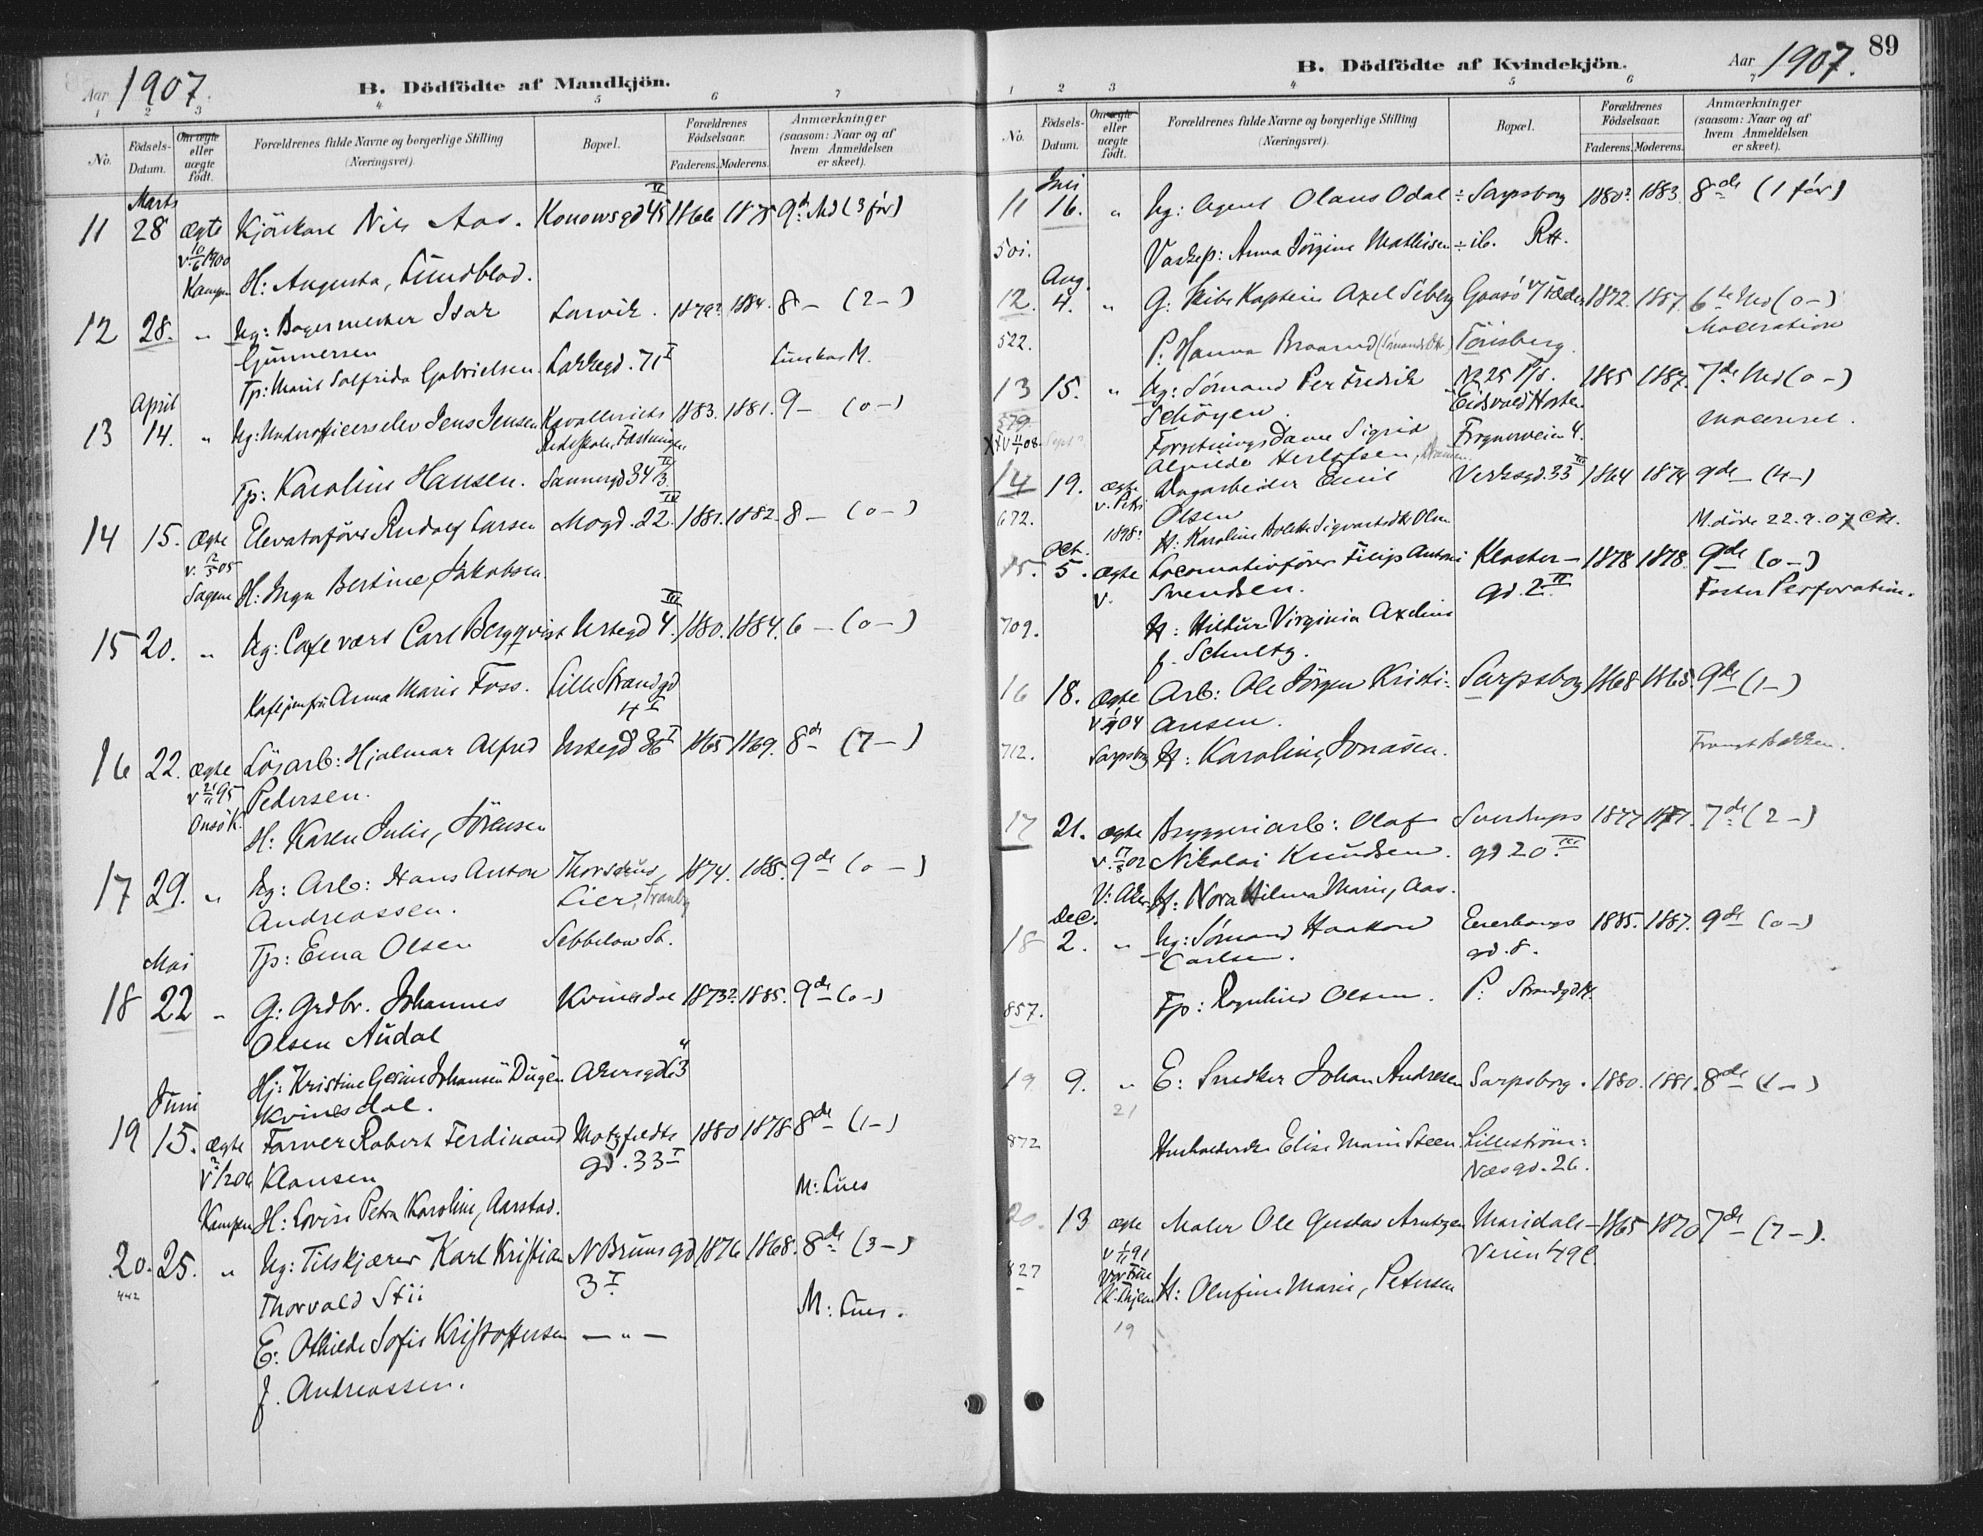 Aar 1907.
B. Dödfödte af Mandkjön.
1 2 3 4 5 6 7
No.
Födsels-Datum.
Om ægte eller uægte født.
Forældrenes fulde Navne og borgerlige Stilling (Næringsvei).
Bopæl.
Forældrenes Fødselsaar.
Faderens. Moderens.
Anmærkninger (saasom: Naar og af hvem Anmeldelsen er skeet).
Marts
11 28 ægte Kjörekarl Nils Aas. Konowsgd 45 II 1866 1875 9de Md (3 før)
v. 10/6 1900
Kampen H: Augusta, Lundblad.
12 28. " Ug: Bagermester Isak Larvik. 1879? 1884. 8 – (2 –)
Gunnersen
Tp: Marie Solfrida Gabrielsen. Lakkegd. 71 I
April
13 14. " Ug: Underofficerselev Jens Jensen Kavalleriets 1883. 1881. 9 – (0 –)
Rideskole, Fæstningen
Tp: Karoline Hansen. Sannergd 34 II
14 15. Ægte Elevatorfører Rudolf Larsen Mogd. 22 IV 1881. 1882. 8 – (0 –)
Sagene H: Inga Bertine, Jakobsen.
15 20. " Ug: Cafevært Carl Bergqvist Urtegd 4 III 1880. 1884. 6 – (0 –)
Kafejomfru Anna Marie Foss. Lille Strandgd
4 I
16 22. ægte Løsarb: Hjalmar Alfred Urtegd 36 I 1865 1869. 8de (7 –)
v 21/11 95 Pedersen.
Onsö K. H: Karen Julie, Sörensen
17 29. " Ug: Arb: Hans Anton 1874. 1885. 9de (0 –)
Andreassen. Lier, Tranby
Tp: Ema Olsen Sebbelow St.
Mai
18 22 " G: Grdbr. Johannes Kvinesdal 1873? 1885. 9de (0 –)
Olsen Audal
Hj: Kristine Gesine Johansen Dugen Akersgd
Kvinesdal.
Juni
19 15. ægte Farver Robert Ferdinand Motzfeldts 1880 1878 8de (1 –)
Klausen gd. 33 I
M: Lues
Kampen H: Lovise Petra Karoline, Aarstad.
20. 25. " Ug: Tilskjærer Karl Kristian N Bruns gd 1876 1868. 8de (3 –)
442 Thorvald Stii 3 I
M: Lues.
E: Othilde Sofie Kristoffersen – " –
f. Andreassen.
B. Dödfödte af Kvindekjön.
Aar 1907. 89
1 2 3 4 5 6 7
No.
Födsels-Datum.
Om ægte eller uægte født.
Forældrenes fulde Navne og borgerlige Stilling (Næringsvei).
Bopæl.
Forældrenes Fødselsaar.
Faderens. Moderens.
Anmærkninger (saasom: Naar og af hvem Anmeldelsen er skeet).
Juli
11 16. " Ug: Agent Olaus Odal ÷ Sarpsborg 1880? 1883. 8de (1 før)
501. Vaskep: Anna Jörgine Mathisen ÷ ib. RH.
Aug.
12. 4. " G: Skibs Kaptein Axel Seberg 1872. 1887. 6te Md (0 –)
Maceration
522. P: Hanna Braarud Tönsberg.
13 15. " Ug: Sömand Per Fredrik 1885 1887. 7de Md (0 –)
579 Schöyen. Eidsvold
Macereret.
Forretningsdame Sigrid Frognerveien 4.
Herlofsen
14 19. ægte Dagarbeider Emil Verksgd. 33 III 1864 1874 9de – (4 –)
v. Petri Olsen
672. 1898? M. døde 22.9.07
Oct.
15. 5. ægte Locomotivfører Filip Anton Kloster– 1878 1878. 9de (0 –)
v. Svendsen. gd. 2 II
Foster Perforation.
709. H: Hildur Virginia Axeline
f. Schultz.
16 18. ægte Arb: Ole Jörgen Kristi- Sarpsborg 1868 1865. 9de (1 –)
ansen.
712. Sarpsborg H: Karoline, Jonasen.
17 21. ægte Bryggeriarb: Olaf Sverdrups 1877 7de (2 –)
Nikolai Knudsen. gd 20 III
V: Aker H: Nora Hilma Marie, Aas.
Dec.
18 2. " Ug: Sömand Haakon Enerhougs 1885. 1887. 9de (0 –)
Carlsen. gd. 8.
857. Tp: Ragnhild Olsen. P:
19 9. " E: Snedker Johan Andresen Sarpsborg. 1880. 1881. 8de (1 –)
21
872 Husholderske Elise Marie Steen. Lilleström:
Næsgd. 26.
20. 13 ægte Maler Ole Gustav Arntzen Maridals– 1865 1870 7de (7 –).
v 1/11 91 Veien 49 c.
827 Vor Frue
K. Thjem H: Olufine Marie, Petersen
19